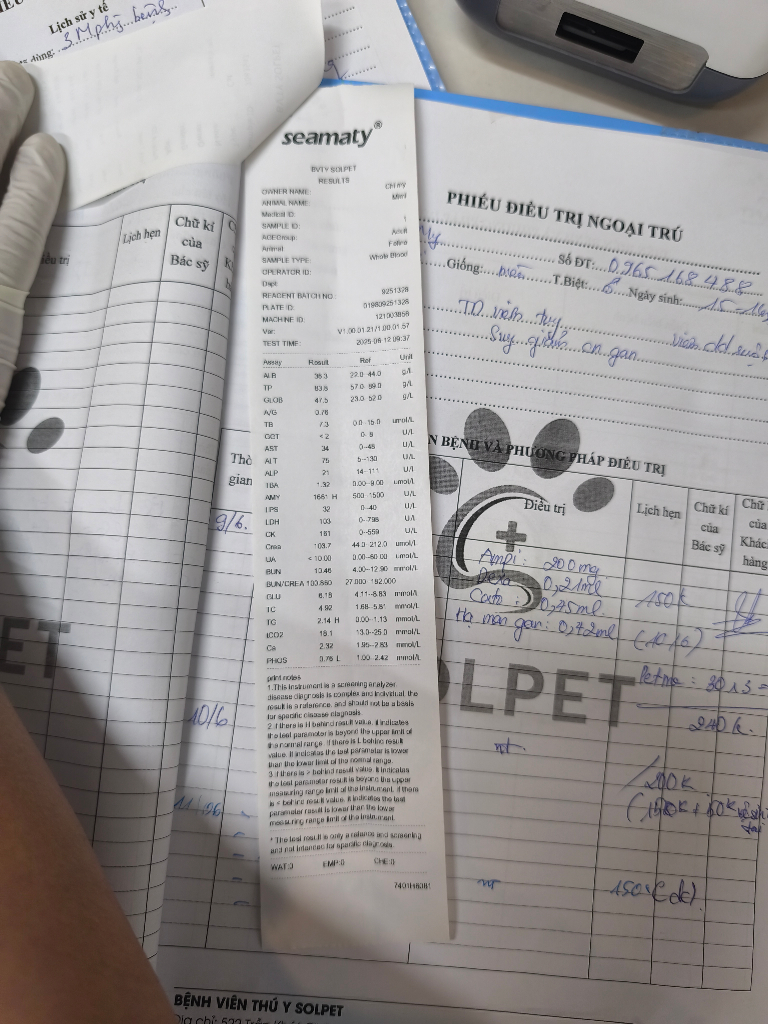 Lịch sử y tế
dùng: 3 Mphị bệnh
seamaty®
BVTY SOLPET
RESULTS
OWNER NAME: CH my
ANIMAL NAME: Mint
Medical ID:
SAMPLE ID: 1
AGEGroup: Adult
Animal: Feline
SAMPLE TYPE: Whole Blood
OPERATOR ID:
Dept:
REAGENT BATCH NO: 9251328
PLATE ID: 019809251328
MACHINE ID: 121003858
Var: V1.00.01.21/1.00.01.57
TEST TIME: 2025-06-12 09:37
Assay Result Ref Unit
ALB 36.3 22.0-44.0 g/L
TP 83.8 57.0-89.0 g/L
GLOB 47.5 23.0-52.0 g/L
A/G 0.76
TB 7.3 0.0-15.0 umol/L
GGT <2 0-8 U/L
AST 34 0-48 U/L
ALT 75 5-130 U/L
ALP 21 14-111 U/L
TBA 1.32 0.00-9.00 umol/L
AMY 1661 H 500-1500 U/L
LPS 32 0-40 U/L
LDH 103 0-798 U/L
CK 181 0-559 U/L
Crea 103.7 44.0-212.0 umol/L
UA <10.00 0.00-60.00 umol/L
BUN 10.46 4.00-12.90 mmol/L
BUN/CREA 100.860 27.000-182.000
GLU 6.18 4.11-8.83 mmol/L
TC 4.92 1.68-5.81 mmol/L
TG 2.14 H 0.00-1.13 mmol/L
tCO2 18.1 13.0-25.0 mmol/L
Ca 2.32 1.95-2.83 mmol/L
PHOS 0.76 L 1.00-2.42 mmol/L
print notes
1.This instrument is a screening analyzer
disease diagnosis is complex and individual, the
result is a reference, and should not be a basis
for specific disease diagnosis.
2.if there is H behind result value, it indicates
the test parameter is beyond the upper limit of
the normal range. If there is L behind result
value, it indicates the test parameter is lower
than the lower limit of the normal range.
3.if there is > behind result value, it indicates
the test parameter result is beyond the upper
measuring range limit of the instrument, if there
is < behind result value, it indicates the test
parameter result is lower than the lower
measuring range limit of the instrument.
* The test result is only a reference and screening
and not intended for specific diagnosis.
WAT:0 EMP:0 CHE:0
7401H6081
PHIẾU ĐIỀU TRỊ NGOẠI TRÚ
My Số ĐT: 0965 168 488
Giống: T.Biệt: Ngày sinh: 15
TD viêm tụy
Suy giảm cn gan
N BỆNH VÀ PHƯƠNG PHÁP ĐIỀU TRỊ
Điều trị Lịch hẹn Chữ kí của Bác sỹ Chữ của Khác hàng
iều trị Lịch hẹn Chữ kí của Bác sỹ
Thờ gian
9/6
Ampi: 200mg
Dexa: 0,21ml
Cato: 0,75ml
Hạ men gan: 0,42ml
150k
(10/6)
30 x 3 =
240k.
10/6
nt
200k
11/06
nt
150k (dd)
SOLPET
ET
BỆNH VIỆN THÚ Y SOLPET